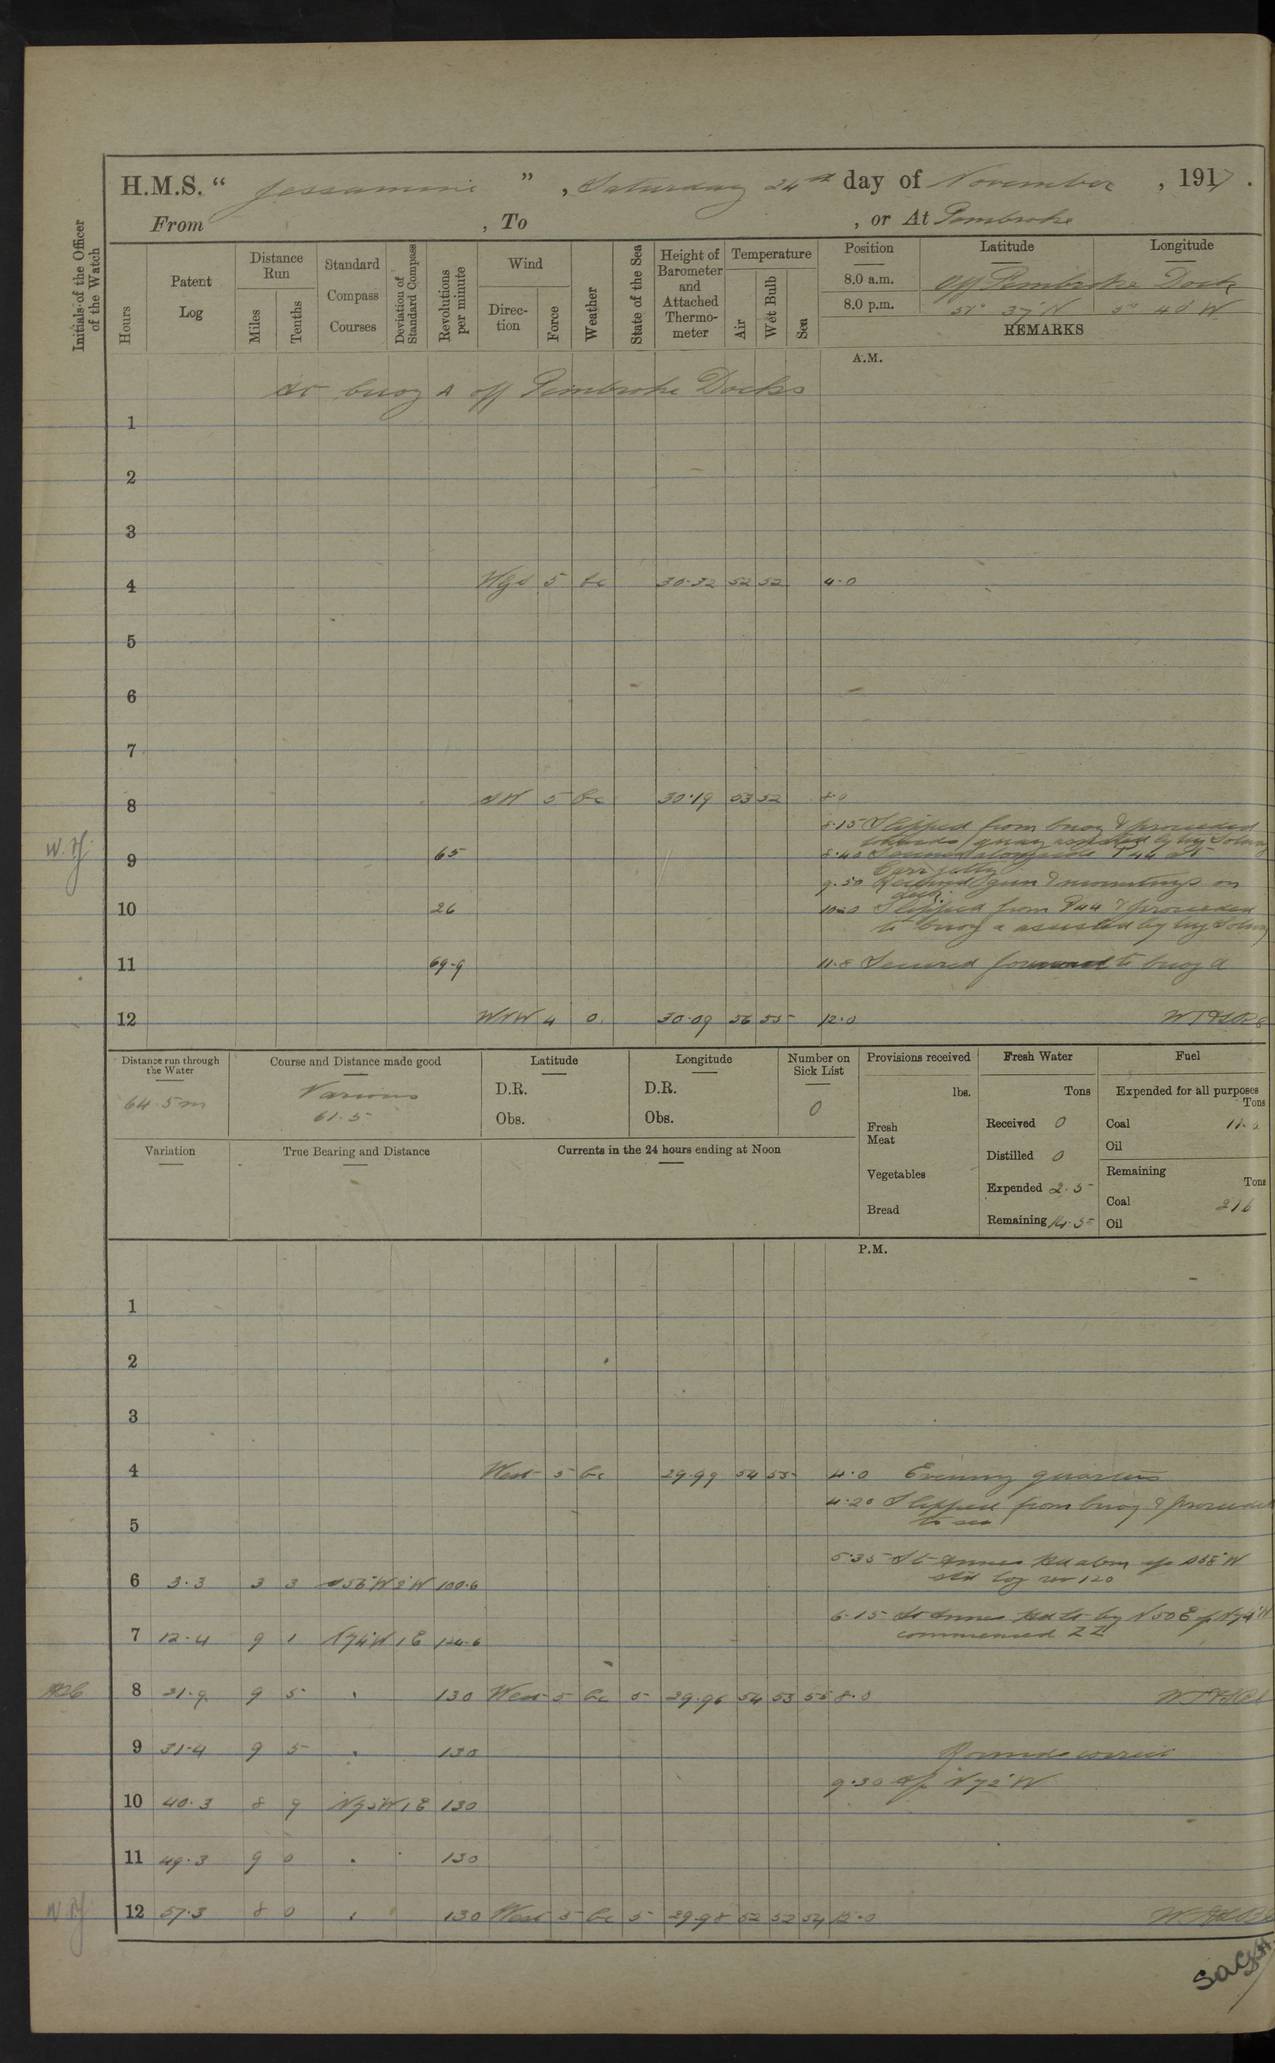 H.M.S. “ Jessamine ” , Saturday 24th day of November , 1917 .
From , To , or At Pembroke
Initials of the Officer of the Watch
Hours
Patent Log
Distance Run
Miles
Tenths
Standard Compass Courses
Deviation of Standard Compass
Revolutions per minute
Wind
Direc-tion
Force
Weather
State of the Sea
Height of Barometer and Attached Thermo-meter
Temperature
Air
Wet Bulb
Sea
Position Latitude Longitude
8.0 a.m. off Pembroke Dock
8.0 p.m. 51° 37' N 5° 40' W
REMARKS
A.M.
At buoy A off Pembroke Docks
1
2
3
4 5 bc 30.32 52 52 4.0
5
6
7
8 SW 5 bc 30.19 53 52 8.0
8.15 Slipped from buoy & proceeded
towards quay assisted by tug
9 65 8.40 Secured alongside P44 at
jetty
9.50 Received gun & mountings on
10 26 10.20 Slipped from P44 & proceeded
to buoy A assisted by tug
11 69.9 11.8 Secured forward to buoy A
12 WNW 4 o. 30.09 56 55 12.0
Distance run through the Water
64.5m
Course and Distance made good
Various
61.5
Latitude
D.R.
Obs.
Longitude
D.R.
Obs.
Number on Sick List
0
Provisions received
lbs.
Fresh Meat
Vegetables
Bread
Fresh Water
Tons
Received 0
Distilled 0
Expended 2.5
Remaining
Fuel
Expended for all purposes
Tons
Coal
Oil
Remaining
Tons
Coal 216
Oil
Variation
True Bearing and Distance
Currents in the 24 hours ending at Noon
P.M.
1
2
3
4 West 5 bc 29.99 54 53 4.0 Evening quarters
4.20 Slipped from buoy & proceeded
5 to sea
5.35 St Annes Hd abm a/c S58°W
6 3.3 3 3 100.6 std log rev 120
6.15 St Annes Hd Lt by N50E a/c N74°W
7 12.4 9 1 N74°W 1E 124.6 commenced ZZ
8 21.9 9 5 " 130 West 5 bc 5 29.96 54 53 55 8.0
9 31.4 9 5 " 130 Rounds correct
9.30 a/c N72°W
10 40.3 8 9 N72°W 1E 130
11 49.3 9 0 " 130
12 57.3 8 0 " 130 West 5 bc 5 29.98 52 52 54 12.0